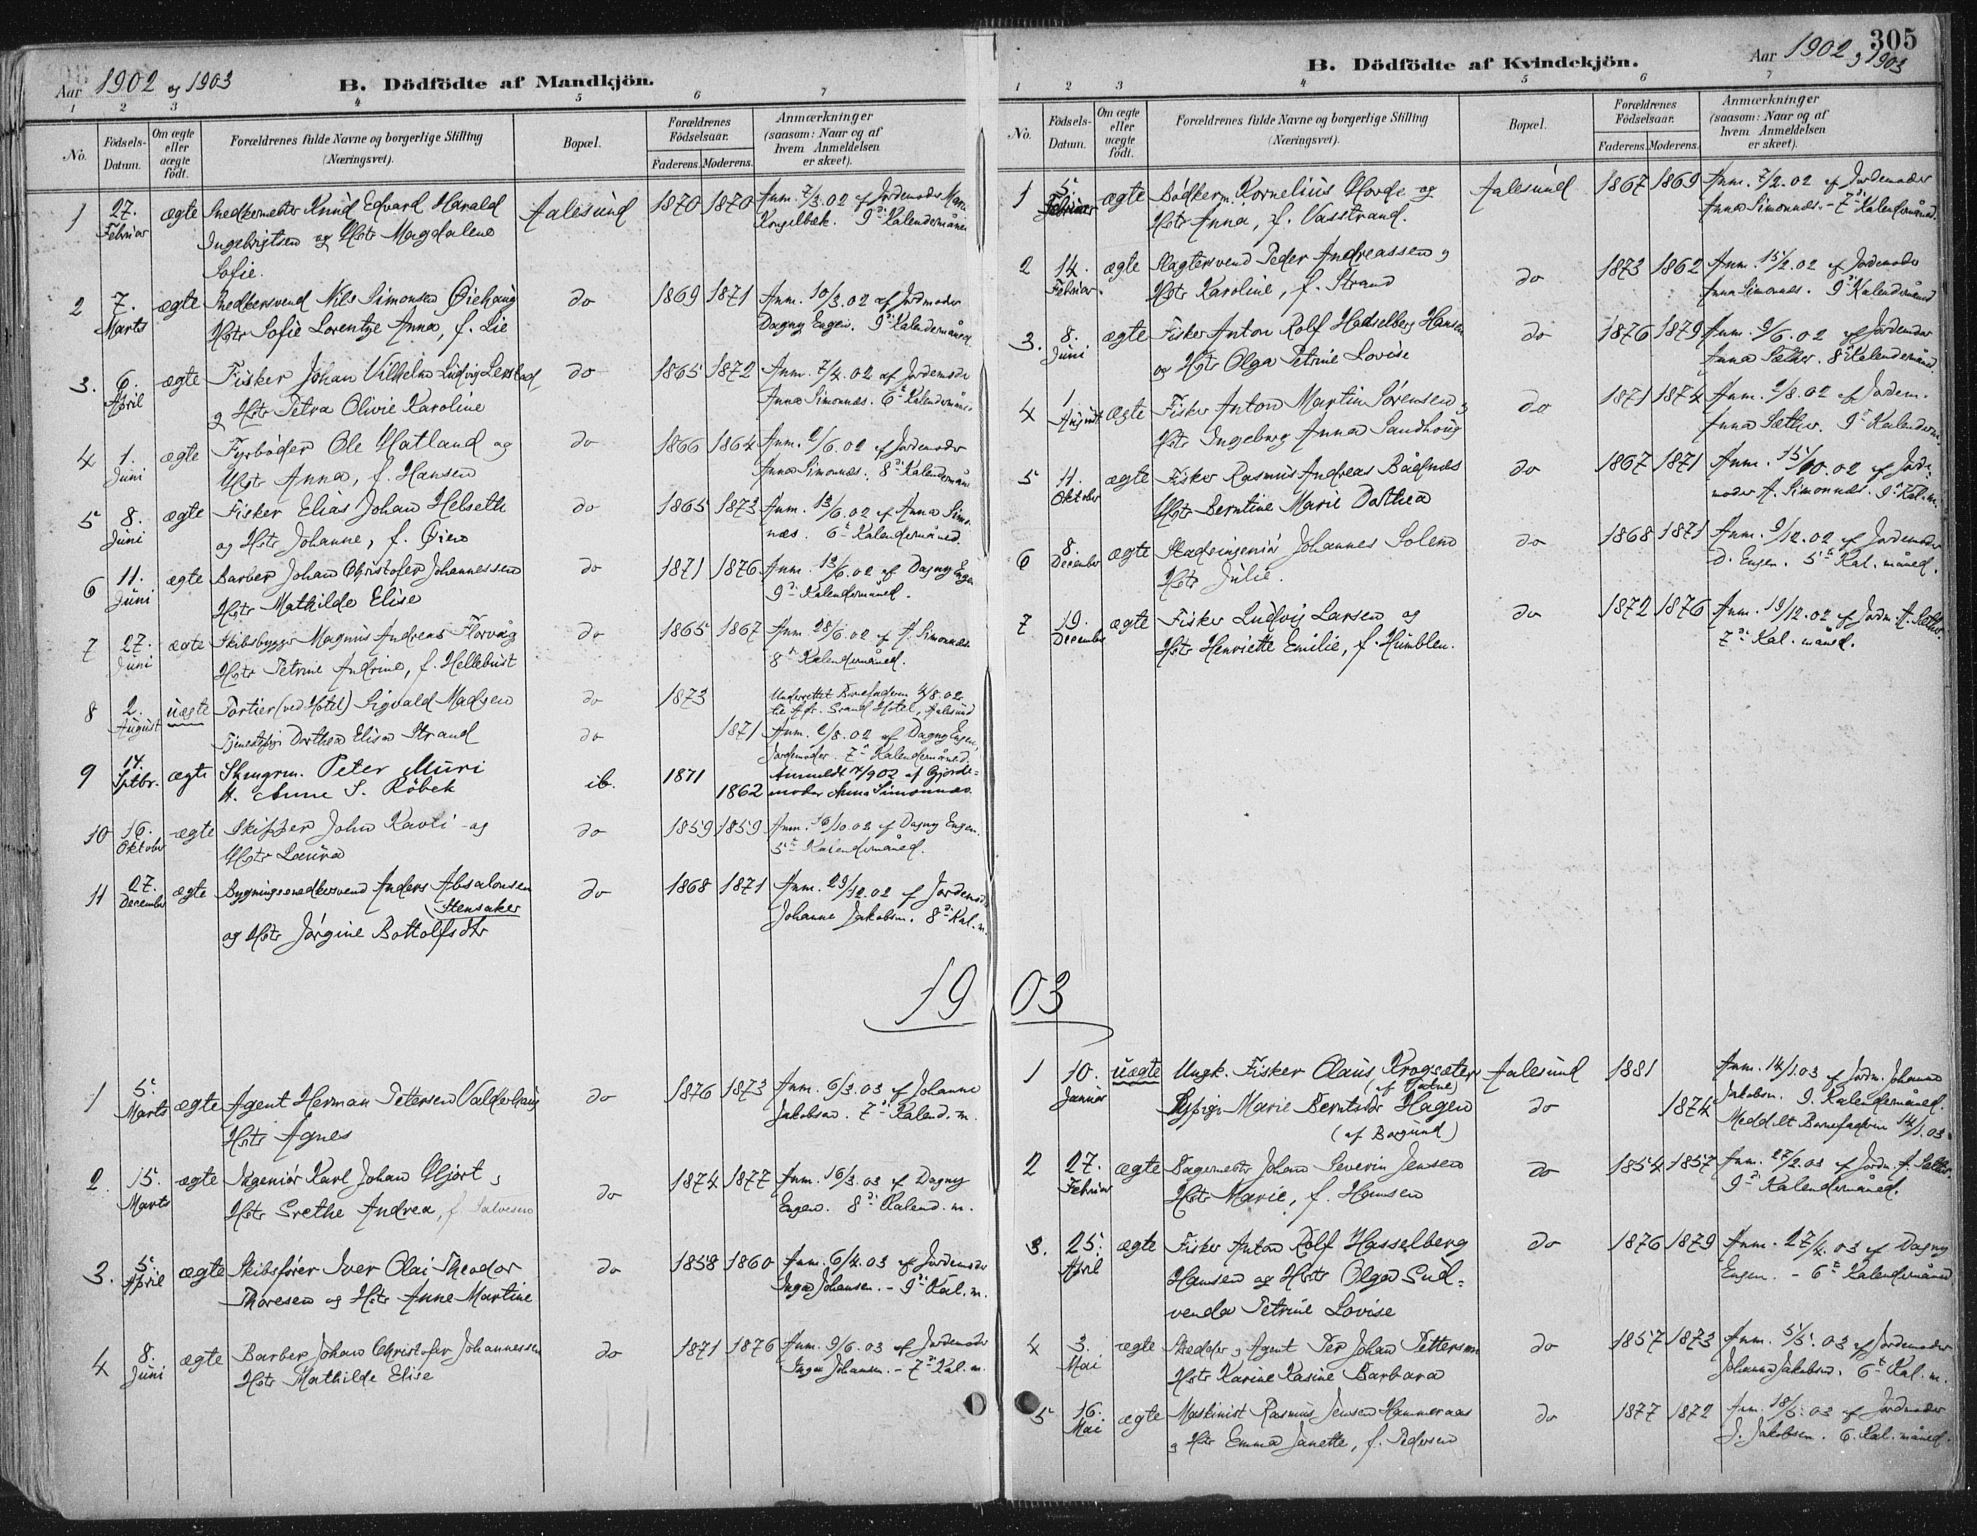 Aar 1902 og 1903
B. Dödfödte af Mandkjön.
1 2 3 4 5 6 7
No.
Födsels-Datum.
Om ægte eller uægte födt.
Forældrenes fulde Navne og borgerlige Stilling (Næringsvei).
Bopæl.
Forældrenes Födselsaar.
Faderens. Moderens.
Anmærkninger (saasom: Naar og af hvem Anmeldelsen er skeet).
1 27. Februar ægte Snedkermester Knud Edvard Harald Aalesund 1870 1870 Anm. 7/3.02 af Jordemoder Maren
Ingebrigtsen og Hstr Magdalene Kongelbæk. 9de Kalendermåned
Sofie.
2 7. Marts ægte Snedkersvend Nils Simonsen Øiehaug do 1869 1871 Anm. 10/3.02 af Jordmoder
Hstr Sofie Lorentze Anna, f. Lie Dagny Engen. 9de Kalendermåned.
3. 6. April ægte Fisker Johan Vilhelm Ludvig do 1865 1872 Anm. 7/4.02 af Jordemoder
og Hstr Petra Olivie Karoline Anna Simonnæs. 6te Kalendermåned
4 1. Juni ægte Fyrbøder Ole Hatland og do 1866 1864 Anm. 2/6.02 af Jordemoder
Hstr Anna, f. Hansen Anna Simonnæs. 8de Kalendermåned
5 8. Juni ægte Fisker Elias Johan Helseth do 1865 1873 Anm. 13/6.02 af Anna Simon-
og Hstr Johanne, f. Øien næs. 6te Kalendermåned.
6 11. Juni ægte Barber Johan Christofer Johannessen do 1871 1876 Anm. 13/6.02 af Dagny Engen
Hstr Mathilde Elise 9de Kalendermåned.
7 27. Juni ægte Skibsbygger Magnus Andreas Florvåg do 1865 1867 Anm. 28/6.02 af A. Simonnæs.
Hstr Petrine Andrine, f. Hellebust 8de Kalendermåned.
8 2. August uægte Portier (ved Hotel) Sigvald Madsen do 1873 Underrettet Barnefaderen 4/8.02.
til Adr. Grand Hotel, Aalesund
Tjenestepige Dorthea Elisa Strand do 1871 Anm. 2/8.02 af Dagny Engen,
Jordemoder. 7de Kalendermåned.
9 14. Septbr. ægte Skomgrm. Peter Muri ib. 1871 Anmeldt 17/9 02 af Gjorde-
H. Anne S. Røbek 1862 moder Anna Simonnæs.
10 16. Oktober ægte Skipper John Kavli og do 1859 1859 Anm. 16/10.02 af Dagny Engen.
Hstr Laura 5te Kalendermåned.
11 27. December ægte Bygningssnedkersvend Anders Absalonsen do 1868 1871 Anm. 29/12.02 af Jordemoder
Stensaker
og Hstr Jørgine Bottolfsdtr Johanne Jakobsen. 8de Kal. m.
1903
1 5. Marts ægte Agent Herman Petersen Valderhaug do 1876 1873 Anm. 6/3.03 af Johanne
Hstr Agnes Jakobsen. 7de Kalend. m.
2. 15. Marts ægte Ingeniør Karl Johan Hjort, do 1874 1877 Anm. 16/3.03 af Dagny
Hstr Grethe Andrea, f. Salvesen Engen. 8de Kalend. m.
3. 5. April ægte Skibsfører Iver Olai Theodor do 1858 1860 Anm. 6/4.03 af Jordemoder
Thoresen og Hstr Anne Martine Inga Johansen. - 9de Kal. m.
4 8. Juni ægte Barber Johan Christofer Johannessen do 1871 1876 Anm. 9/6.03 af Jordemoder
Hstr Mathilde Elise Inga Johansen. - 7de Kal. m.
305
Aar 1902 og 1903
B. Dödfödte af Kvindekjön.
1 2 3 4 5 6 7
No.
Födsels-Datum.
Om ægte eller uægte födt.
Forældrenes fulde Navne og borgerlige Stilling (Næringsvei).
Bopæl.
Forældrenes Födselsaar.
Faderens. Moderens.
Anmærkninger (saasom: Naar og af hvem Anmeldelsen er skeet).
1 5. Februar ægte Bødkerm. Kornelius Hovde og Aalesund 1867 1869 Anm. 7/2.02 af Jordemoder
Hstr Anna, f. Vasstrand. Anna Simonnæs. - 7de Kalendermåned.
2 14. Februar ægte Slagtersvend Peder Andreassen og do 1873 1862 Anm. 15/2.02 af Jordemoder
Hstr Karoline, f. Strand Anna Simonnæs. 9de Kalendermåned
3. 8. Juni ægte Fisker Anton Rolf Hasselberg Hansen do 1876 1879 Anm. 9/6.02 af Jordemoder
og Hstr Olga Petrine Lovise Anna Sæther. 8de Kalendermåned.
4 1. August ægte Fisker Anton Martin Sørensen og do 1871 1874 Anm. 2/8.02 af Jordem.
Hstr Ingeborg Anna Sandhoug Anna Sæther. 9de Kalenderm.
5 11. Oktober ægte Fisker Rasmus Andreas Bådnes do 1867 1871 Anm. 15/10.02 af Jorde-
Hstr Berntine Marie Dorthea moder A. Simonnæs. 9de Kal. m.
6 8. December ægte Stadsingeniør Johannes Solem do 1868 1871 Anm. 9/12.02 af Jordemoder
Hstr Julie. D. Engen. 5te Kal. måned.
7 19. December ægte Fisker Ludvig Larsen og do 1872 1876 Anm. 19/12.02 af Jordm. A. Sæther.
Hstr Henriette Emilie, f. Humblen. 7de Kal. måned.
1 10. Januar uægte Ungk. Fisker Olaus Krogsæter Aalesund 1881 Anm. 14/1.03 af Jordm. Johanne
(af Vatne) Jakobsen. 9. Kalendermåned.
Tjpige Marie Berntsdtr Hagen do 1874 Meddelt Barnefaderen 14/1.03.
(af Borgund)
2 27. Februar ægte Bagermester Johan Severin Jensen do 1854 1857 Anm. 27/2.03 af Jordm. A. Sæther.
Hstr Marie, f. Hansen 9de Kalendermåned.
3. 25. April ægte Fisker Anton Rolf Hasselberg do 1876 1879 Anm. 27/4.03 af Dagny
Hansen og Hstr Olga Gud- Engen. - 6te Kalendermåned
venda Petrine Lovise
4 3. Mai ægte Skrædder og Agent Per Johan Pettersen do 1857 1873 Anm. 5/5.03 af Jordemoder
Hstr Karine Kasine Barbara Johanne Jakobsen. 6te Kal. m.
5 16. Mai ægte Maskinist Rasmus Jensen Hammeraas do 1877 1872 Anm. 18/5.03 af Jordmoder
og Hstr Emma Janette, f. Pedersen J. Jakobsen. 6. Kal. måned.